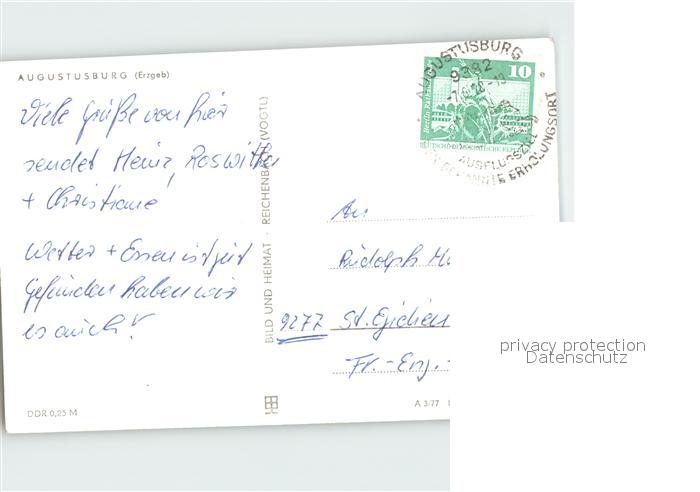 AUGUSTUSBURG (Erzgeb)
Viele Grüße von hier
sendet Heinz, Roswitha
+ Christiane
Wetter + Essen ist gut
gefunden haben wir
es auch!
DDR 0,25 M
BILD UND HEIMAT · REICHENBACH (VOGTL)
A 3/77
AUGUSTUSBURG
9382
AUSFLUGSZIEL
ERHOLUNGSORT
10
DEUTSCHE DEMOKRATISCHE REPUBLIK
An
Rudolph
9277 St. Egidien
Fr.-Eng.-
privacy protection
Datenschutz